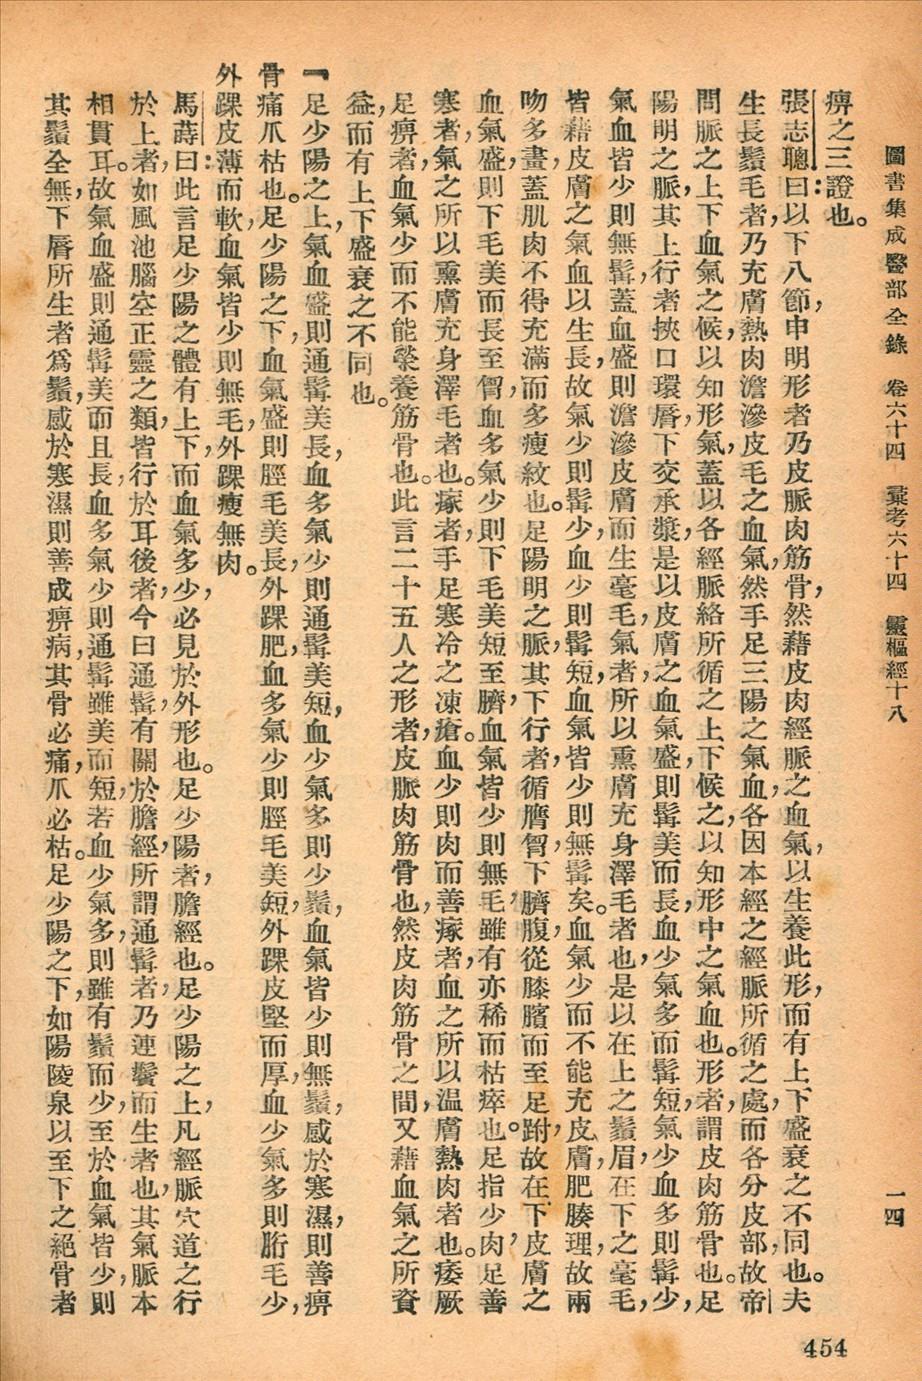 圖書集成醫部全錄　卷六十四　彙考六十四　靈樞經十八　一四
痹之三證也。
張志聰曰：以下八節，申明形者乃皮脈肉筋骨，然藉皮肉經脈之血氣，以生養此形，而有上下盛衰之不同也。夫
生長鬚毛者，乃充膚熱肉澹滲皮毛之血氣，然手足三陽之氣血，各因本經之經脈所循之處，而各分皮部，故帝
問脈之上下血氣之候，以知形氣，蓋以各經脈絡所循之上下候之，以知形中之氣血也。形者，謂皮肉筋骨也。足
陽明之脈，其上行者挾口環脣，下交承漿，是以皮膚之血氣盛，則髯美而長，血少氣多而髯短，氣少血多則髯少，
氣血皆少則無髯，蓋血盛則澹滲皮膚而生毫毛，氣者，所以熏膚充身澤毛者也，是以在上之鬚眉，在下之毫毛，
皆藉皮膚之氣血以生長，故氣少則髯少，血少則髯短，血氣皆少則無髯矣。血氣少而不能充皮膚，肥腠理，故兩
吻多畫，蓋肌肉不得充滿，而多瘦紋也。足陽明之脈，其下行者，循膺胷，下臍腹，從膝臏而至足跗，故在下皮膚之
血氣盛，則下毛美而長至胷，血多氣少，則下毛美短至臍，血氣皆少則無毛，雖有亦稀而枯瘁也。足指少肉，足善
寒者，氣之所以熏膚充身澤毛者也。瘃者，手足寒冷之凍瘡。血少則肉而善瘃者，血之所以温膚熱肉者也。痿厥
足痹者，血氣少而不能榮養筋骨也。此言二十五人之形者，皮脈肉筋骨也，然皮肉筋骨之間，又藉血氣之所資
益，而有上下盛衰之不同也。
『足少陽之上，氣血盛則通髯美長，血多氣少則通髯美短，血少氣多則少鬚，血氣皆少則無鬚，感於寒濕，則善痹
骨痛爪枯也。足少陽之下，血氣盛則脛毛美長，外踝肥，血多氣少則脛毛美短，外踝皮堅而厚，血少氣多則胻毛少，
外踝皮薄而軟，血氣皆少則無毛，外踝瘦無肉。
馬蒔曰：此言足少陽之體有上下，而血氣多少，必見於外形也。足少陽者，膽經也。足少陽之上，凡經脈穴道之行
於上者，如風池腦空正靈之類，皆行於耳後者，今曰通髯，有關於膽經，所謂通髯者，乃連鬢而生者也，其氣脈本
相貫耳。故氣血盛則通髯美而且長，血多氣少則通髯雖美而短，若血少氣多，則雖有鬚而少，至於血氣皆少，則
其鬚全無，下脣所生者爲鬚，感於寒濕則善成痹病，其骨必痛，爪必枯。足少陽之下，如陽陵泉以至下之絕骨者
454